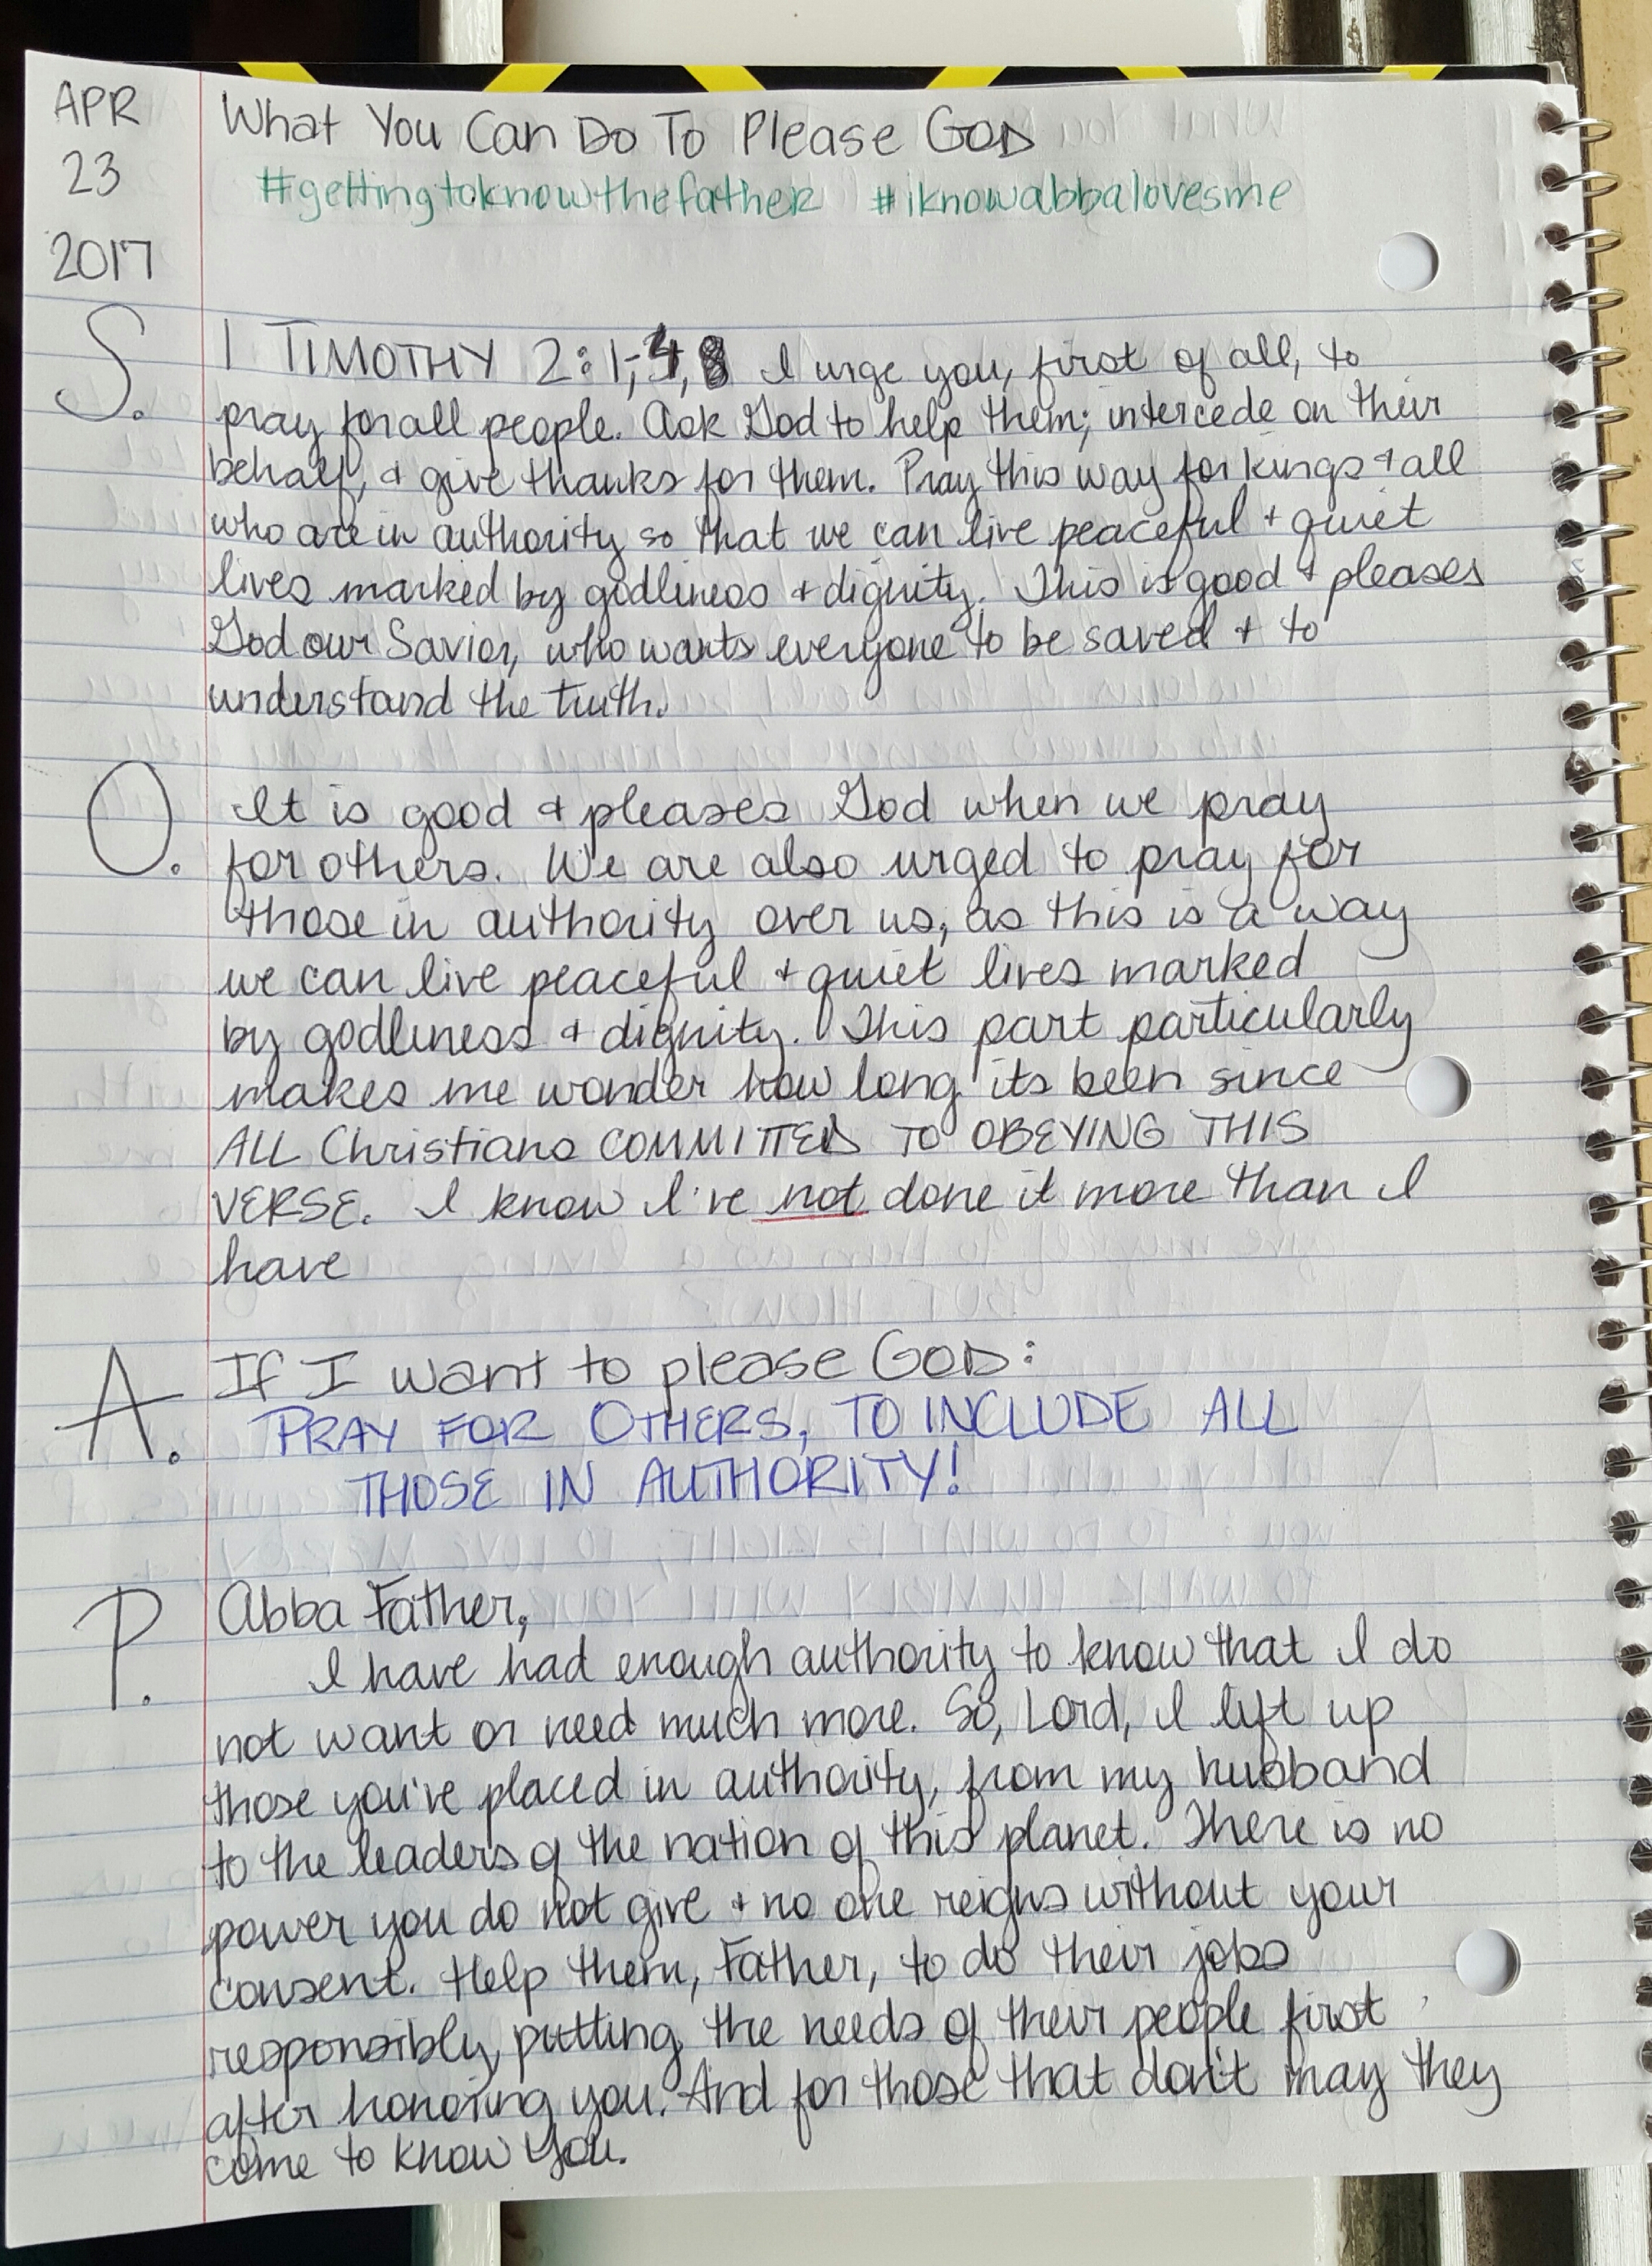 APR
23
2017
What You Can Do To Please GOD
#gettingtoknowthefather #iknowabbalovesme
S. 1 TIMOTHY 2:1-4, I urge you, first of all, to
pray for all people. Ask God to help them; intercede on their
behalf, & give thanks for them. Pray this way for kings & all
who are in authority so that we can live peaceful & quiet
lives marked by godliness & dignity. This is good & pleases
God our Savior, who wants everyone to be saved & to
understand the truth.
O. It is good & pleases God when we pray
for others. We are also urged to pray for
those in authority over us, as this is a way
we can live peaceful & quiet lives marked
by godliness & dignity. This part particularly
makes me wonder how long its been since
ALL Christians COMMITTED TO OBEYING THIS
VERSE. I know I've not done it more than I
have
A. If I want to please GOD:
PRAY FOR OTHERS, TO INCLUDE ALL
THOSE IN AUTHORITY!
P. Abba Father,
I have had enough authority to know that I do
not want or need much more. So, Lord, I lift up
those you've placed in authority, from my husband
to the leaders of the nation of this planet. There is no
power you do not give & no one reigns without your
consent. Help them, Father, to do their jobs
responsibly, putting the needs of their people first
after honoring you. And for those that don't may they
come to know You.